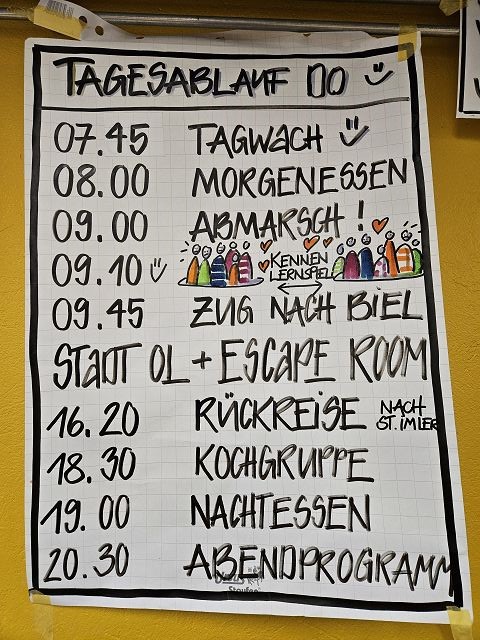 TAGESABLAUF DO
07.45 TAGWACH
08.00 MORGENESSEN
09.00 ABMARSCH!
09.10 KENNEN
LERNSPIEL
09.45 ZUG NACH BIEL
STADT OL + ESCAPE ROOM
16.20 RÜCKREISE NACH
ST. IMIER
18.30 KOCHGRUPPE
19.00 NACHTESSEN
20.30 ABENDPROGRAMM